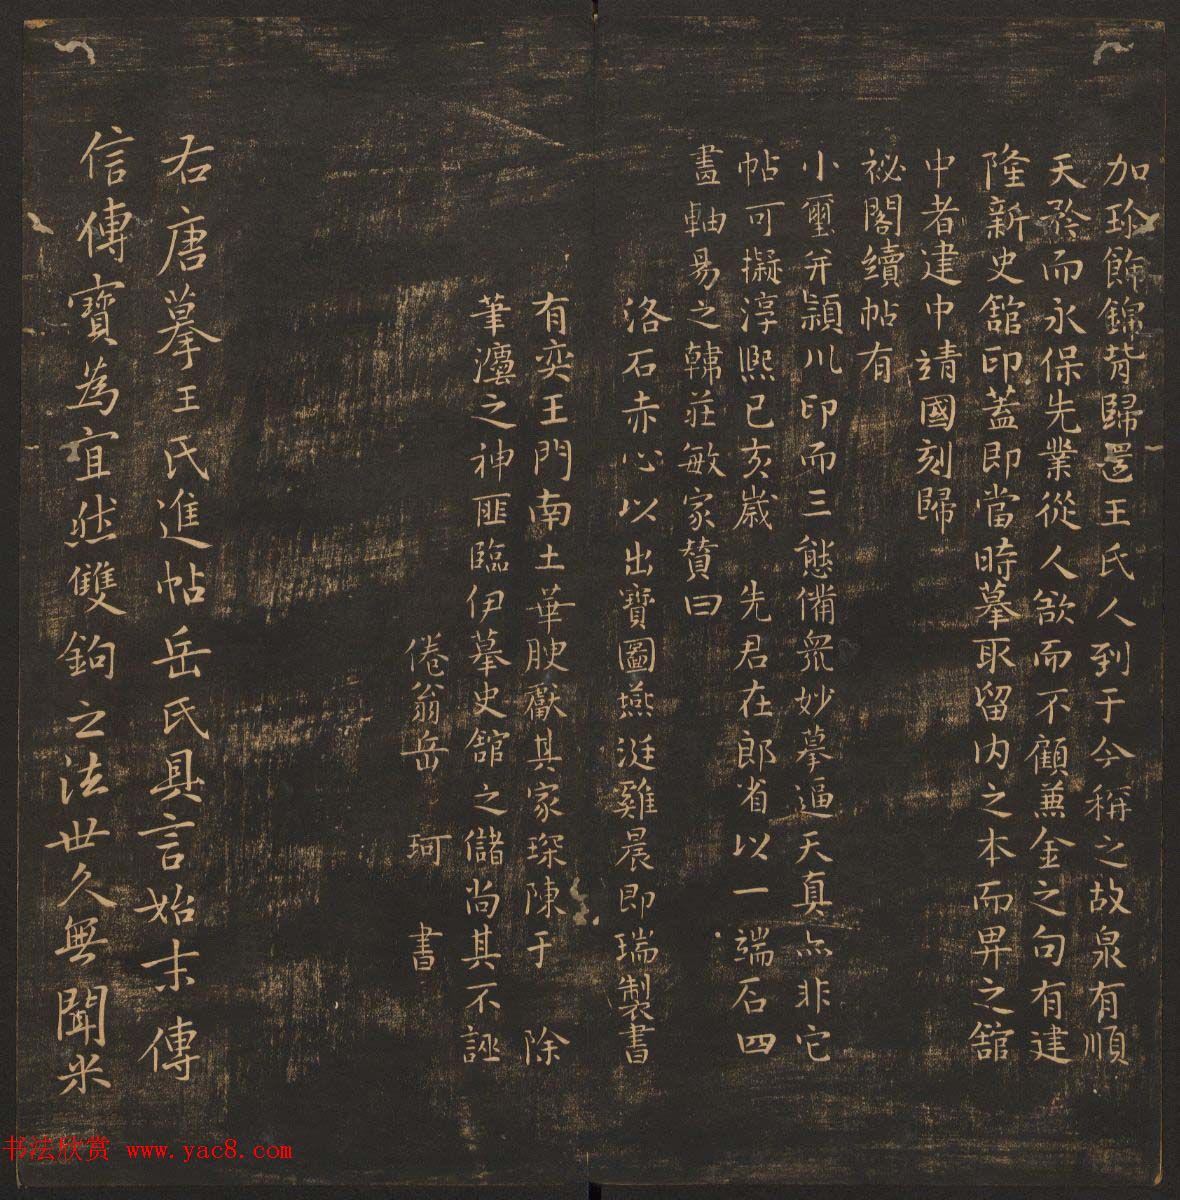 加珍飾錦背歸還王氏人到于今稱之故泉有順
天矜而永保先業從人欲而不顧兼金之句有建
隆新史館印蓋即當時摹取留内之本而畀之館
中者建中靖國刻歸
祕閣續帖有
小璽并潁川印而三態備眾妙摹逼天真亦非它
帖可擬淳熙己亥歲 先君在郎省以一端石四
畫軸易之韓莊敏家贊曰
洛石赤心以出寶圖燕涎雞晨即瑞製書
有奕王門南土華腴獻其家琛陳于 除
筆灋之神匪臨伊摹史館之儲尚其不誣
倦翁岳 珂 書
右唐摹王氏進帖岳氏具言始末傳
信傳寶為宜然雙鉤之法世久無聞米
书法欣赏 www.yac8.com